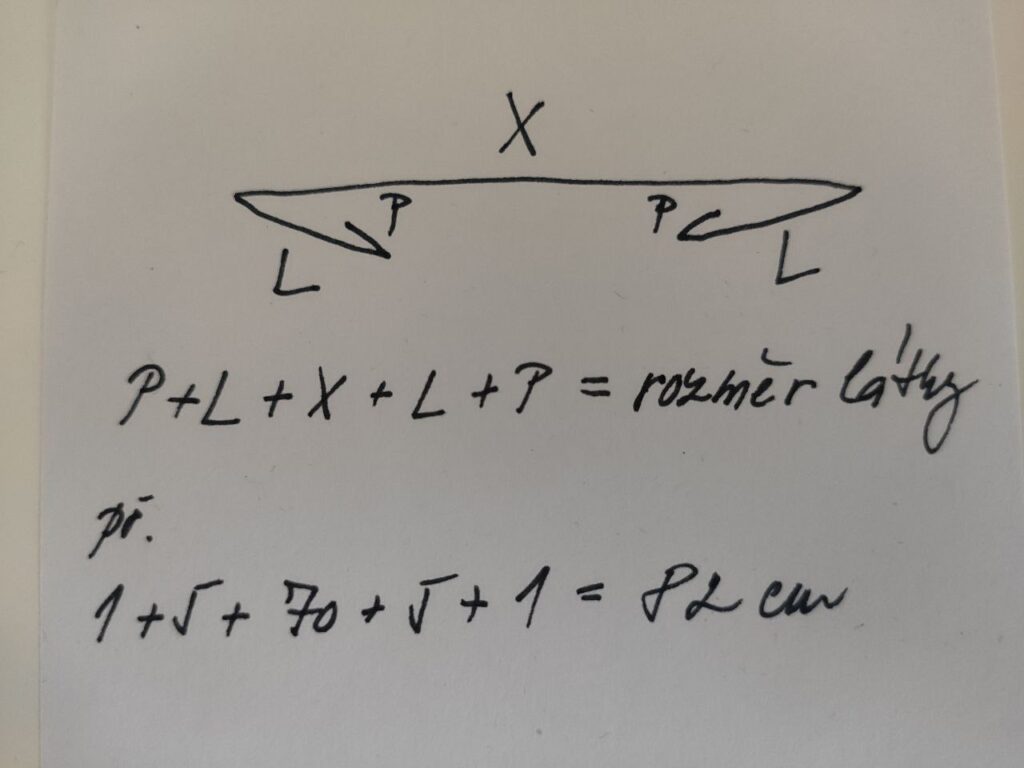 X
P P
L L
P+L+X+L+P = rozměr látky
př.
1+5+70+5+1 = 82 cm